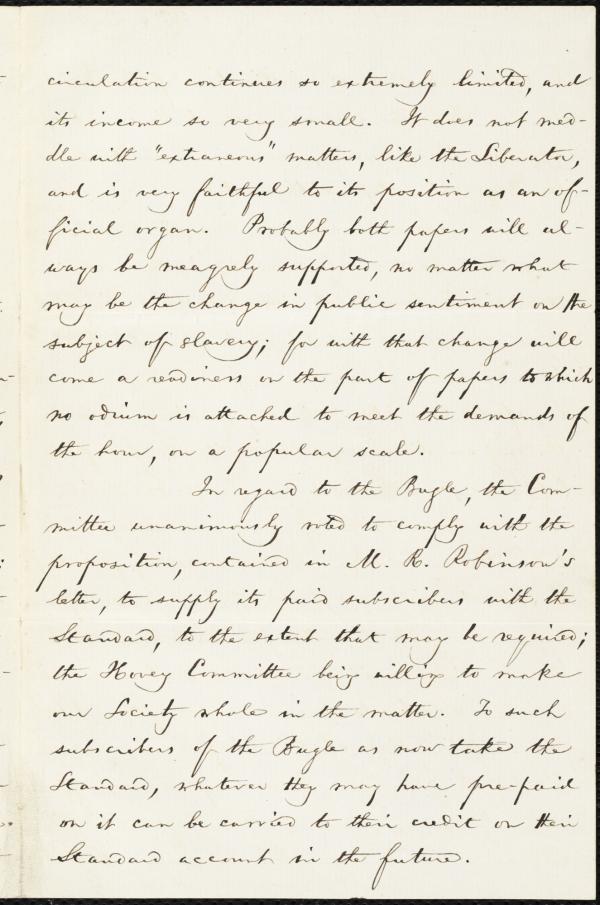 circulation continues so extremely limited, and
its income so very small. It does not med-
dle with "extraneous" matters, like the Liberator,
and is very faithful to its position as an of-
ficial organ. Probably both papers will al-
ways be meagrely supported, no matter what
may be the change in public sentiment on the
subject of slavery; for with that change will
come a readiness on the part of papers to which
no odium is attached to meet the demands of
the hour, on a popular scale.
In regard to the Bugle, the Com-
mittee unanimously voted to comply with the
proposition, contained in M. R. Robinson's
letter, to supply its paid subscribers with the
Standard, to the extent that may be required;
the Hovey Committee being willing to make
our Society whole in the matter. To such
subscribers of the Bugle as now take the
Standard, whatever they may have pre-paid
on it can be carried to their credit on their
Standard account in the future.